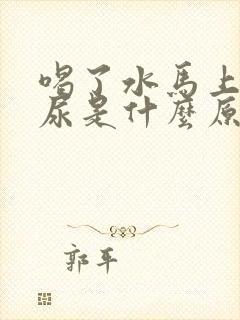 喝了水馬上
尿是什麼原
郭平